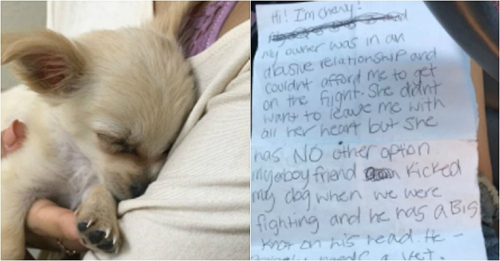 Hi! I'm Chewy!
my owner was in an
abusive relationship and
couldnt afford me to get
on the flight. She didnt
want to leave me with
all her heart but she
has NO other option
my boyfriend Kicked
my dog when we were
fighting and he has a BIG
knot on his head. He
needs a vet.